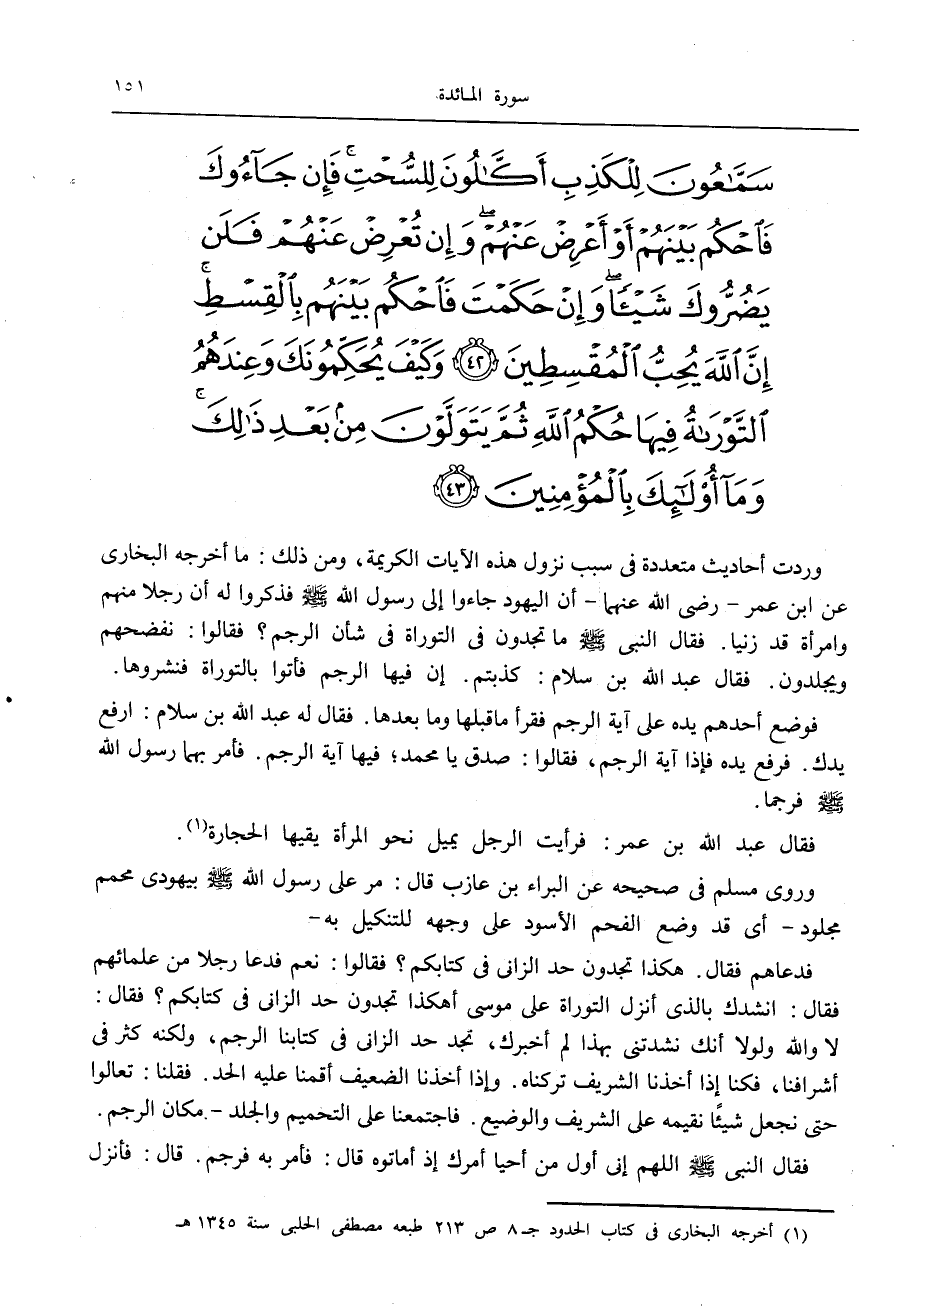 سورة المائدة
١٥١
سَمَّٰعُونَ لِلْكَذِبِ أَكَّٰلُونَ لِلسُّحْتِ ۚ فَإِن جَآءُوكَ
فَٱحْكُم بَيْنَهُمْ أَوْ أَعْرِضْ عَنْهُمْ ۖ وَإِن تُعْرِضْ عَنْهُمْ فَلَن
يَضُرُّوكَ شَيْـًٔا ۖ وَإِنْ حَكَمْتَ فَٱحْكُم بَيْنَهُم بِٱلْقِسْطِ ۚ
إِنَّ ٱللَّهَ يُحِبُّ ٱلْمُقْسِطِينَ ٤٢ وَكَيْفَ يُحَكِّمُونَكَ وَعِندَهُمُ
ٱلتَّوْرَىٰةُ فِيهَا حُكْمُ ٱللَّهِ ثُمَّ يَتَوَلَّوْنَ مِنۢ بَعْدِ ذَٰلِكَ ۚ
وَمَآ أُو۟لَٰٓئِكَ بِٱلْمُؤْمِنِينَ ٤٣
وردت أحاديث متعددة فى سبب نزول هذه الآيات الكريمة، ومن ذلك : ما أخرجه البخارى
عن ابن عمر - رضى الله عنهما - أن اليهود جاءوا إلى رسول الله ﷺ فذكروا له أن رجلا منهم
وامرأة قد زنيا. فقال النبى ﷺ ما تجدون فى التوراة فى شأن الرجم؟ فقالوا : نفضحهم
ويجلدون. فقال عبد الله بن سلام : كذبتم. إن فيها الرجم فأتوا بالتوراة فنشروها.
فوضع أحدهم يده على آية الرجم فقرأ ماقبلها وما بعدها. فقال له عبد الله بن سلام : ارفع
يدك. فرفع يده فإذا آية الرجم، فقالوا : صدق يا محمد؛ فيها آية الرجم. فأمر بهما رسول الله
ﷺ فرجما.
فقال عبد الله بن عمر : فرأيت الرجل يميل نحو المرأة يقيها الحجارة(١).
وروى مسلم فى صحيحه عن البراء بن عازب قال : مر على رسول الله ﷺ بيهودى محمم
مجلود - أى قد وضع الفحم الأسود على وجهه للتنكيل به -
فدعاهم فقال. هكذا تجدون حد الزانى فى كتابكم؟ فقالوا : نعم فدعا رجلا من علمائهم
فقال : انشدك بالذى أنزل التوراة على موسى أهكذا تجدون حد الزانى فى كتابكم؟ فقال :
لا والله ولولا أنك نشدتنى بهذا لم أخبرك، تجد حد الزانى فى كتابنا الرجم، ولكنه كثر فى
أشرافنا، فكنا إذا أخذنا الشريف تركناه. وإذا أخذنا الضعيف أقمنا عليه الحد. فقلنا : تعالوا
حتى نجعل شيئًا نقيمه على الشريف والوضيع. فاجتمعنا على التحميم والجلد - مكان الرجم.
فقال النبى ﷺ اللهم إنى أول من أحيا أمرك إذ أماتوه قال : فأمر به فرجم. قال : فأنزل
(١) أخرجه البخارى فى كتاب الحدود جـ ٨ ص ٢١٣ طبعه مصطفى الحلبى سنة ١٣٤٥ هـ